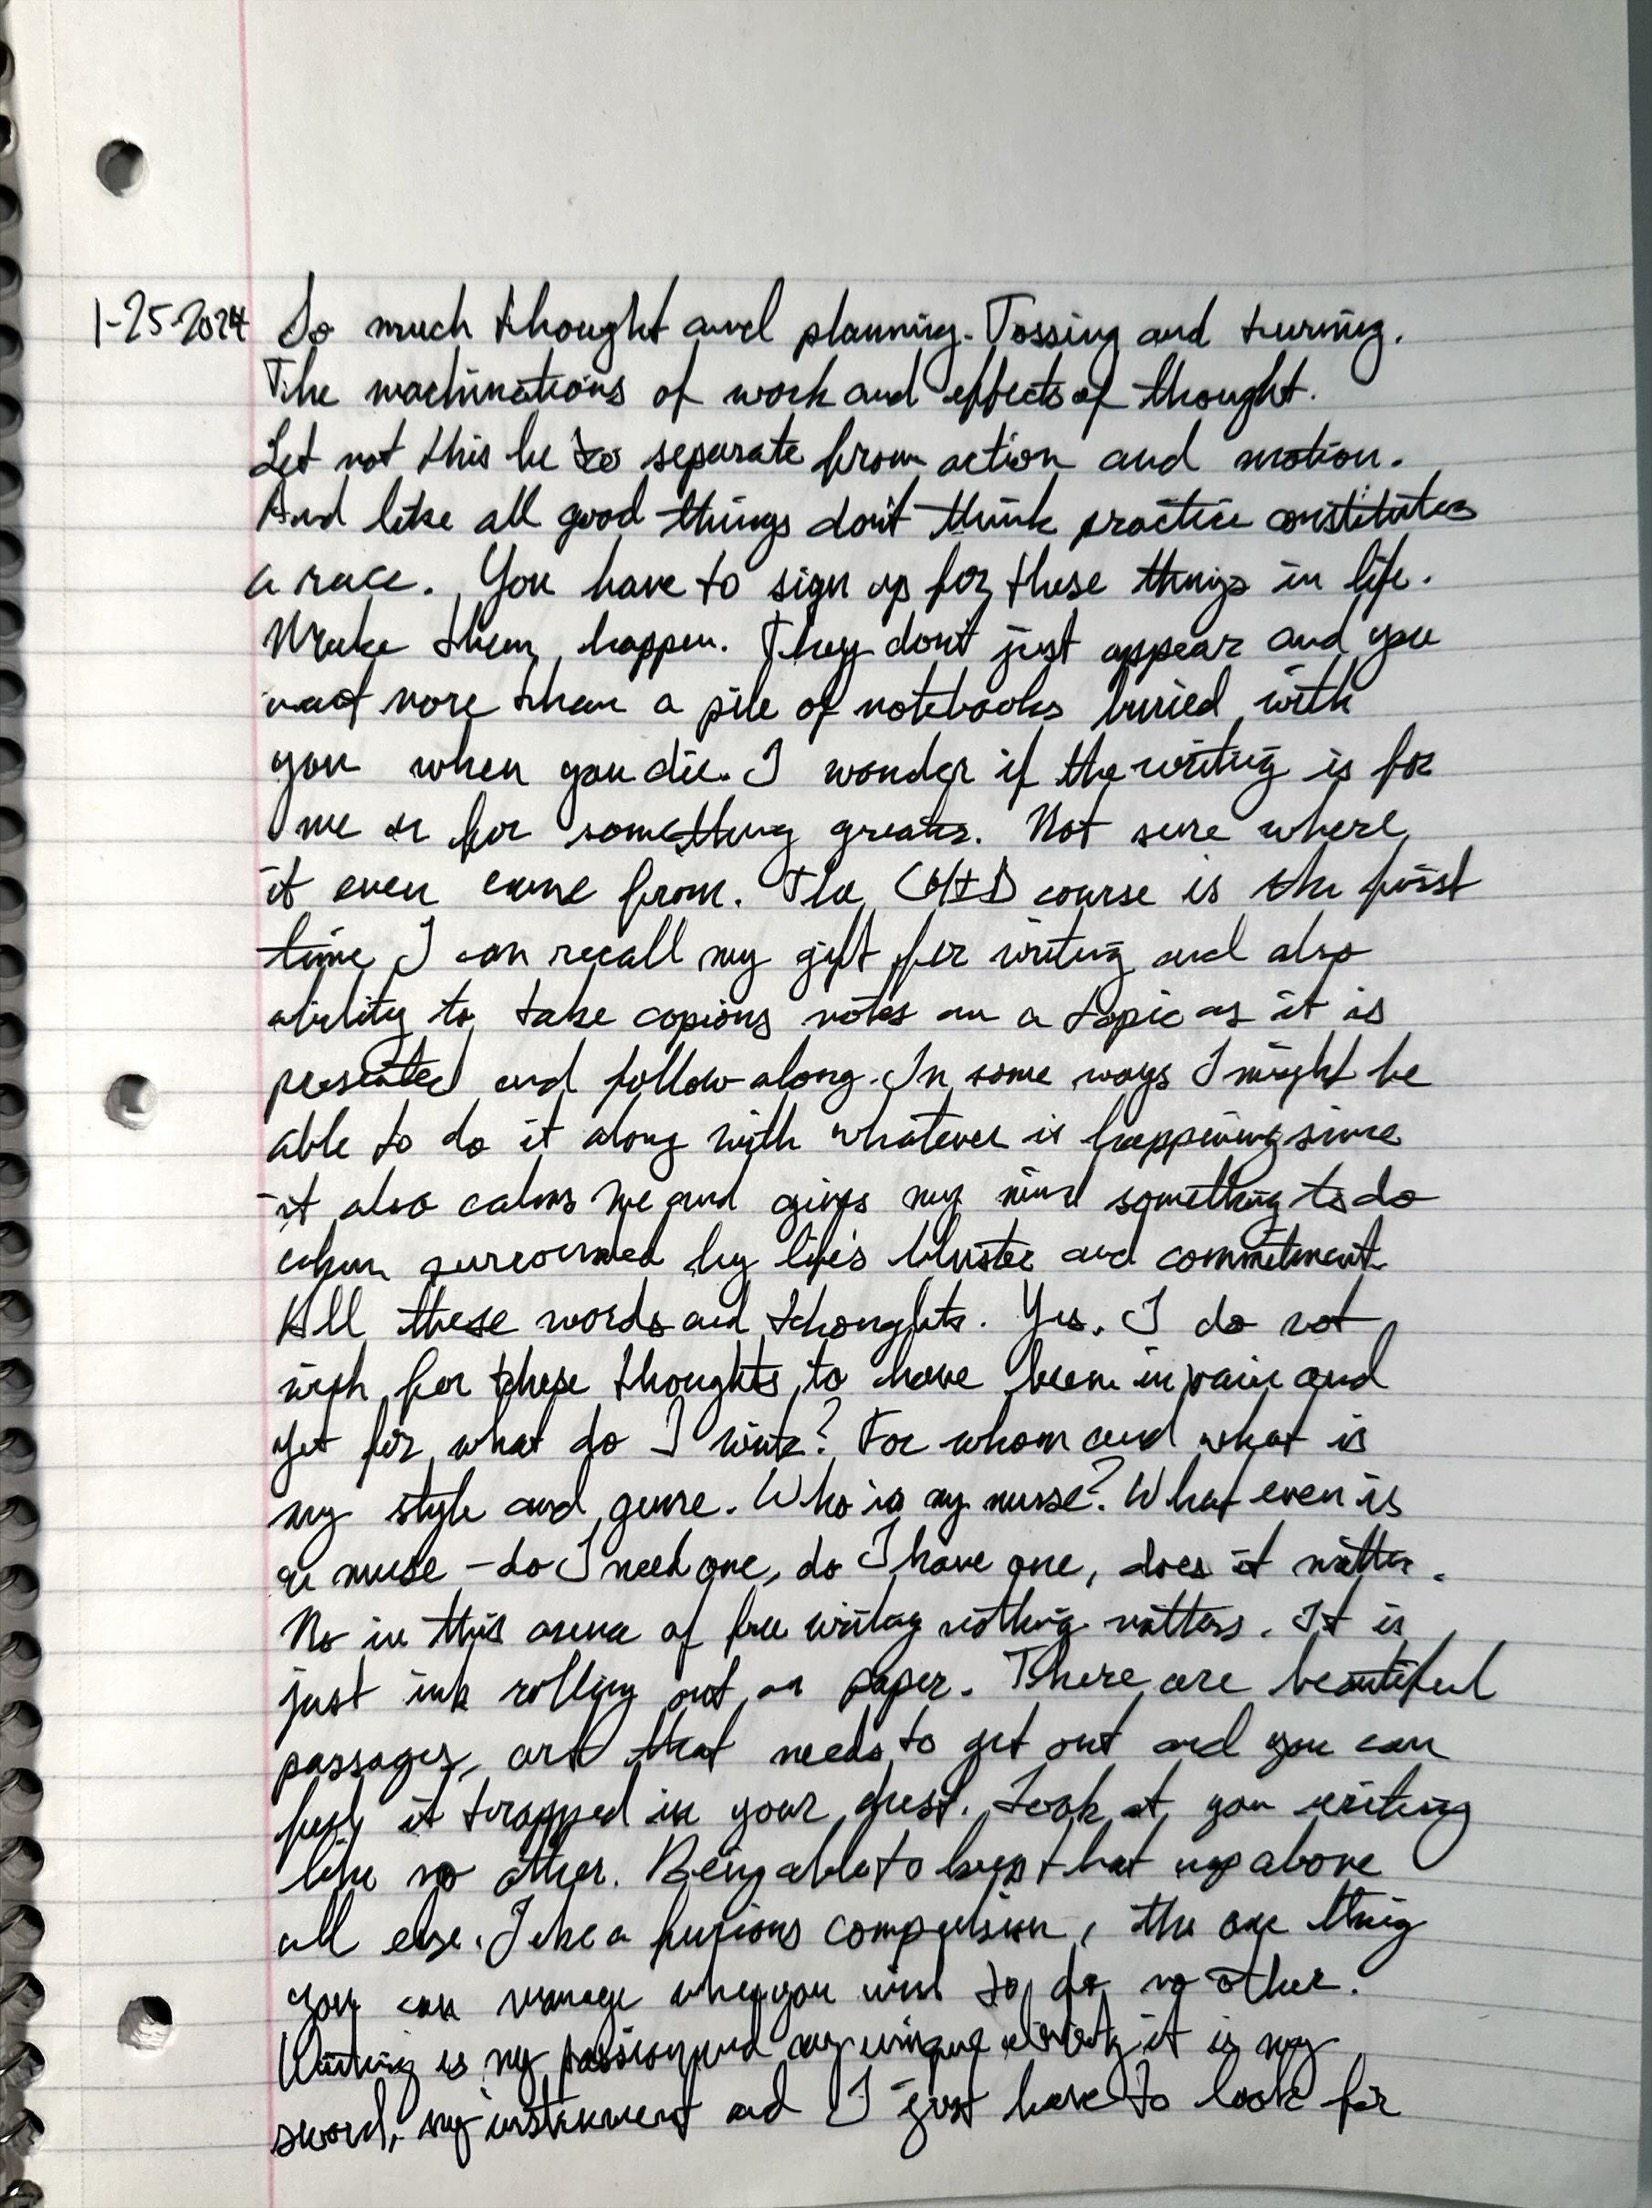 1-25-2024 So much thought and planning. Tossing and turning.
The machinations of work and effects of thought.
Let not this be so separate from action and motion.
And like all good things don't think practice constitutes
a race. You have to sign up for these things in life.
Make them happen. They don't just appear and you
want more than a pile of notebooks buried with
you when you die. I wonder if the writing is for
me or for something greater. Not sure where
it even came from. The course is the first
time I can recall my gift for writing and also
ability to take copious notes on a topic as it is
presented and follow along. In some ways I might be
able to do it along with whatever is happening since
it also calms me and gives my mind something to do
when surrounded by life's bluster and commitment.
All these words and thoughts. Yes. I do not
wish for these thoughts to have been in vain and
yet for what do I write? For whom and what is
my style and genre. Who is my muse? What even is
a muse - do I need one, do I have one, does it matter.
No in this arena of free writing nothing matters. It is
just ink rolling out on paper. There are beautiful
passages, art that needs to get out and you can
feel it trapped in your chest. Look at you writing
like no other. Being able to keep that up above
all else. Like a furious compulsion, the one thing
you can manage when you wish to do no other.
Writing is my passion and my unique ability it is my
sword, my instrument and I just have to look for